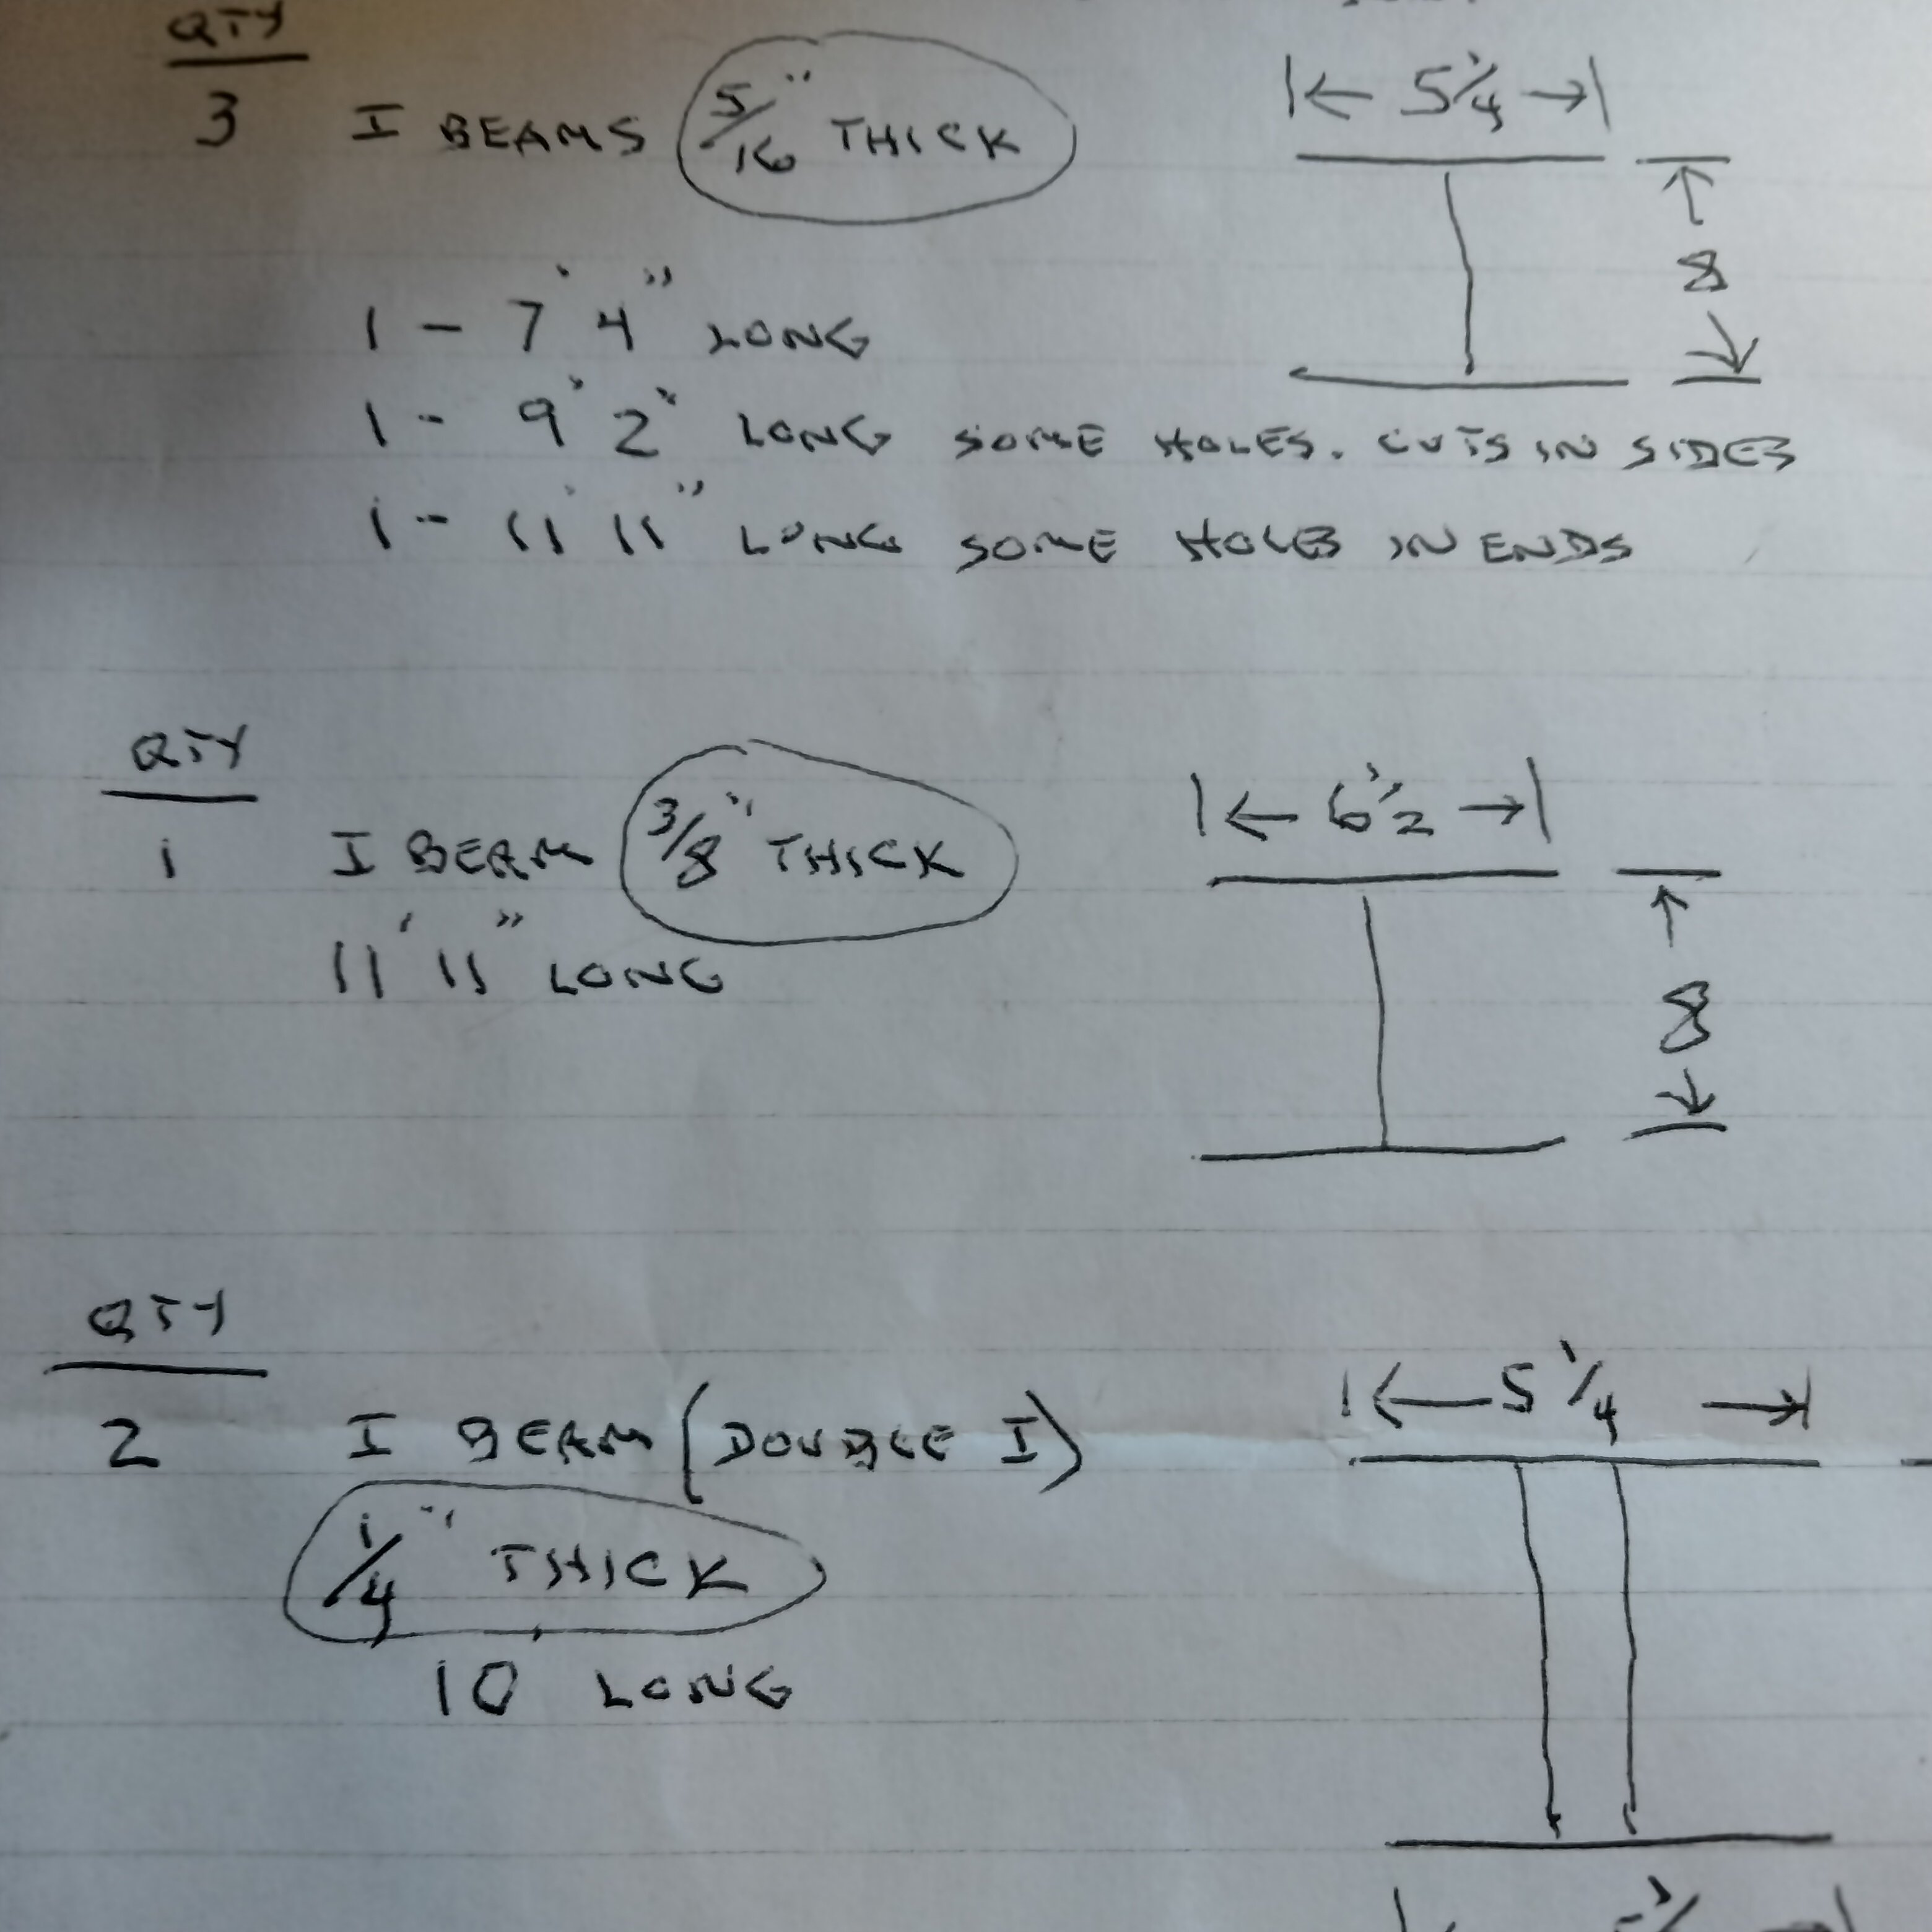 QTY
3 I BEAMS 5/16" THICK |← 5 1/4 →|
8
1 - 7' 4" LONG
1 - 9' 2" LONG SOME HOLES. CUTS IN SIDES
1 - 11' 11" LONG SOME HOLES IN ENDS
QTY
1 I BEAM 3/8" THICK |← 6 1/2 →|
11' 11" LONG
8
QTY
2 I BEAM (DOUBLE I) |← 5 1/4 →|
1/4" THICK
10' LONG